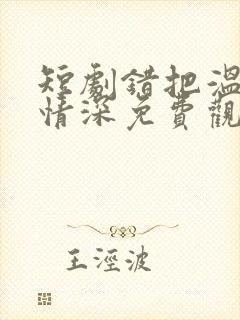 短劇錯把溫
情深免費觀
王淫波